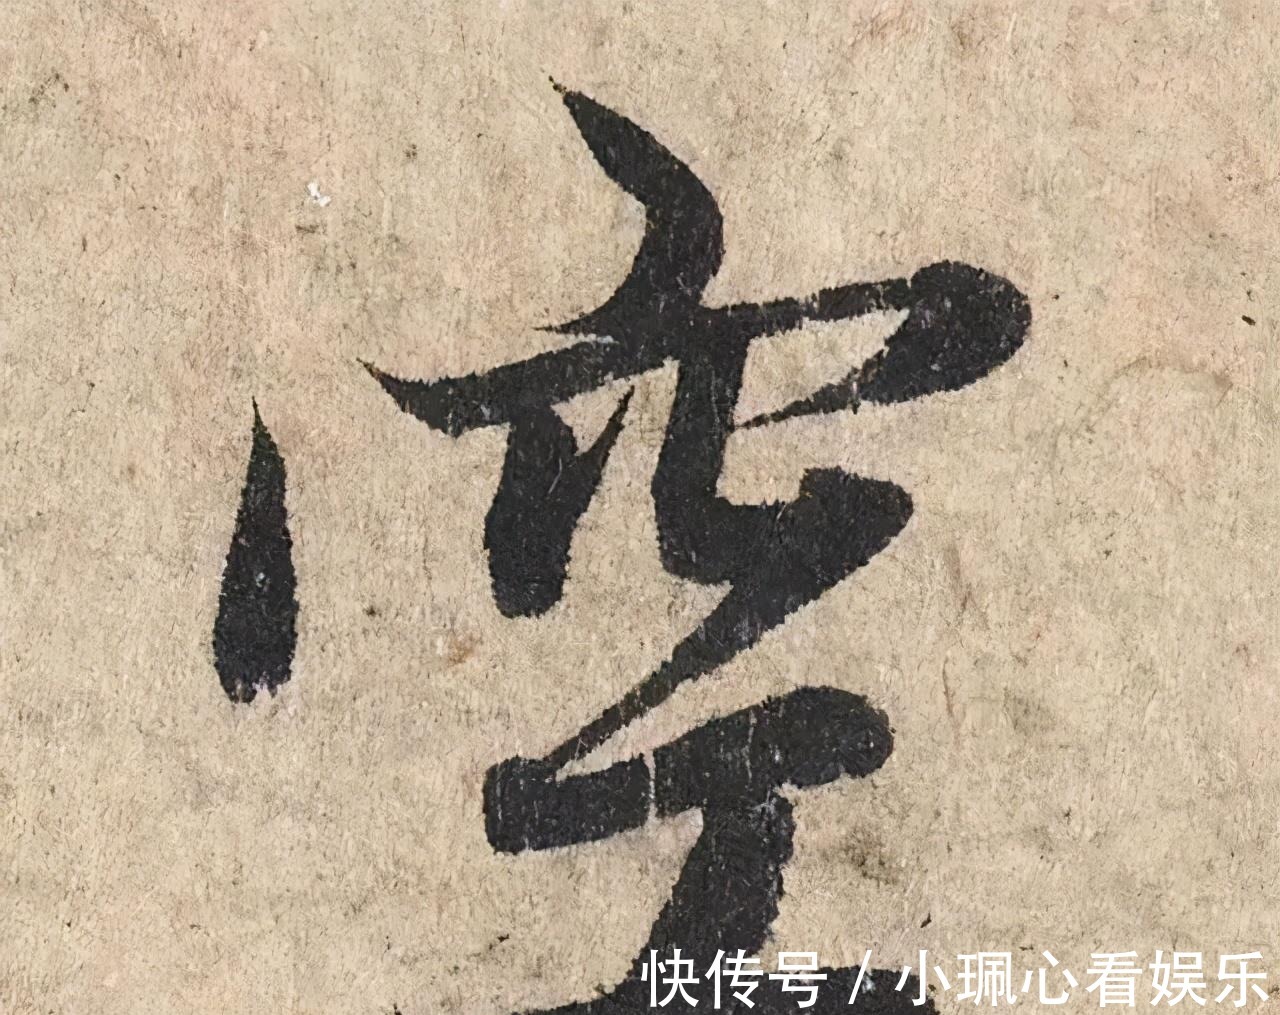 空
快传号 / 小珮心看娱乐